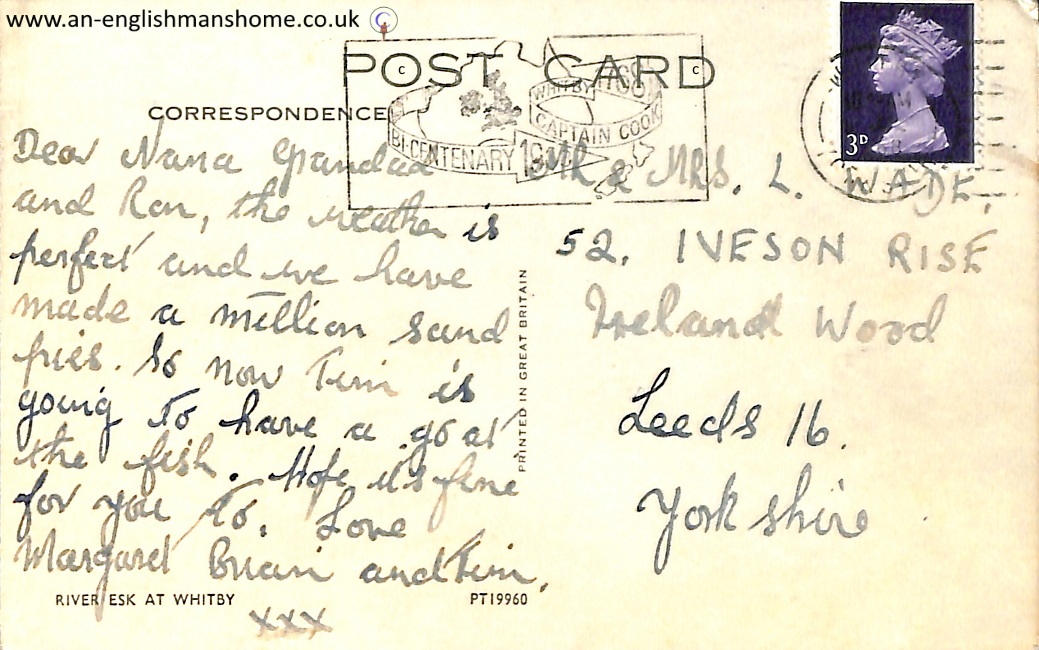 www.an-englishmanshome.co.uk
POST CARD
CORRESPONDENCE
WHITBY 1968
CAPTAIN COOK
BI-CENTENARY
3D
Dear Nana Grandad
and Ron, the weather is
perfect and we have
made a million sand
pies. So now Tim is
going to have a go at
the fish. Hope it's fine
for you to. Love
Margaret Brian and Tim.
xxx
Mr & MRS. L. WADE,
52. IVESON RISE
Ireland Wood
Leeds 16.
Yorkshire
PRINTED IN GREAT BRITAIN
RIVER ESK AT WHITBY
PT19960